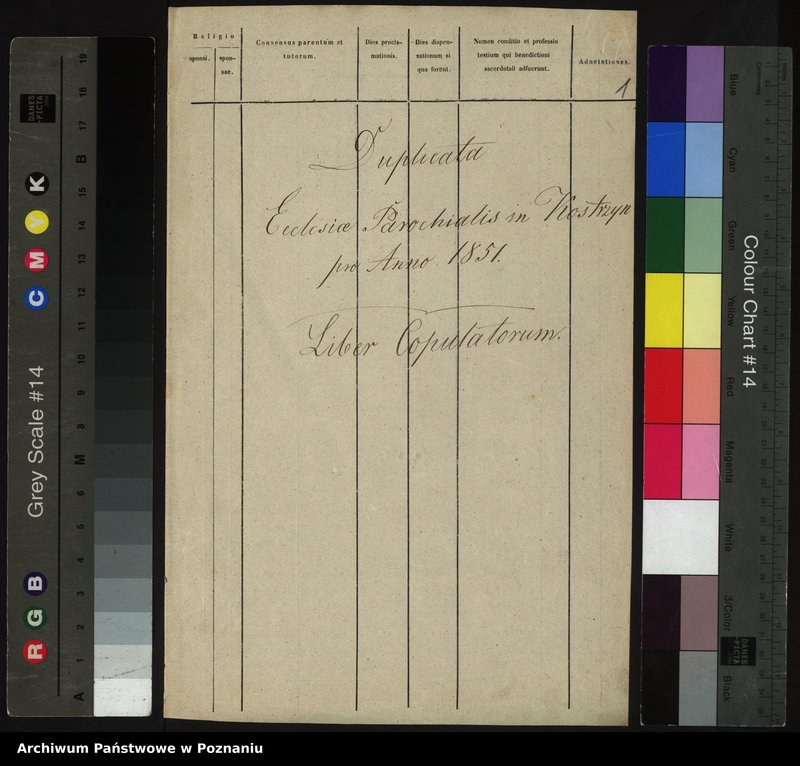 Religio
sponsi.
spon-
sae.
Consensus parentum et
tutorum.
Dies procla-
mationis.
Dies dispen-
sationum si
qua forent.
Nomen conditio et professio
testium qui benedictioni
sacerdotali adfuerunt.
Adnotationes.
1
Duplicata
Ecclesiæ Parochialis in Kostrzyn
pro Anno 1851.
Liber Copulatorum.
Grey Scale #14
R G B
C M Y K
A 1 2 3 4 5 6 M 8 9 10 11 12 13 14 15 B 17 18 19
DANES
-PICTA
.COM
Colour Chart #14
Blue
Cyan
Green
Yellow
Red
Magenta
White
3/Color
Black
DANES
-PICTA
.COM
Archiwum Państwowe w Poznaniu